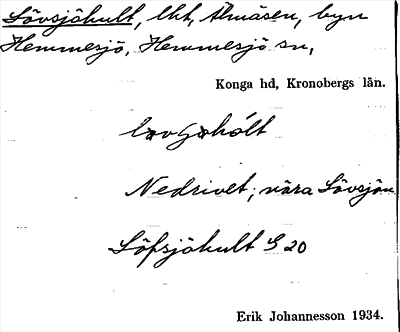 Lövsjökult, lht, Almåsen, byn
Hemmesjö, Hemmesjö sn,
Konga hd, Kronobergs län.
Nedrivet; nära Lövsjön
Löfsjökult G 20
Erik Johannesson 1934.